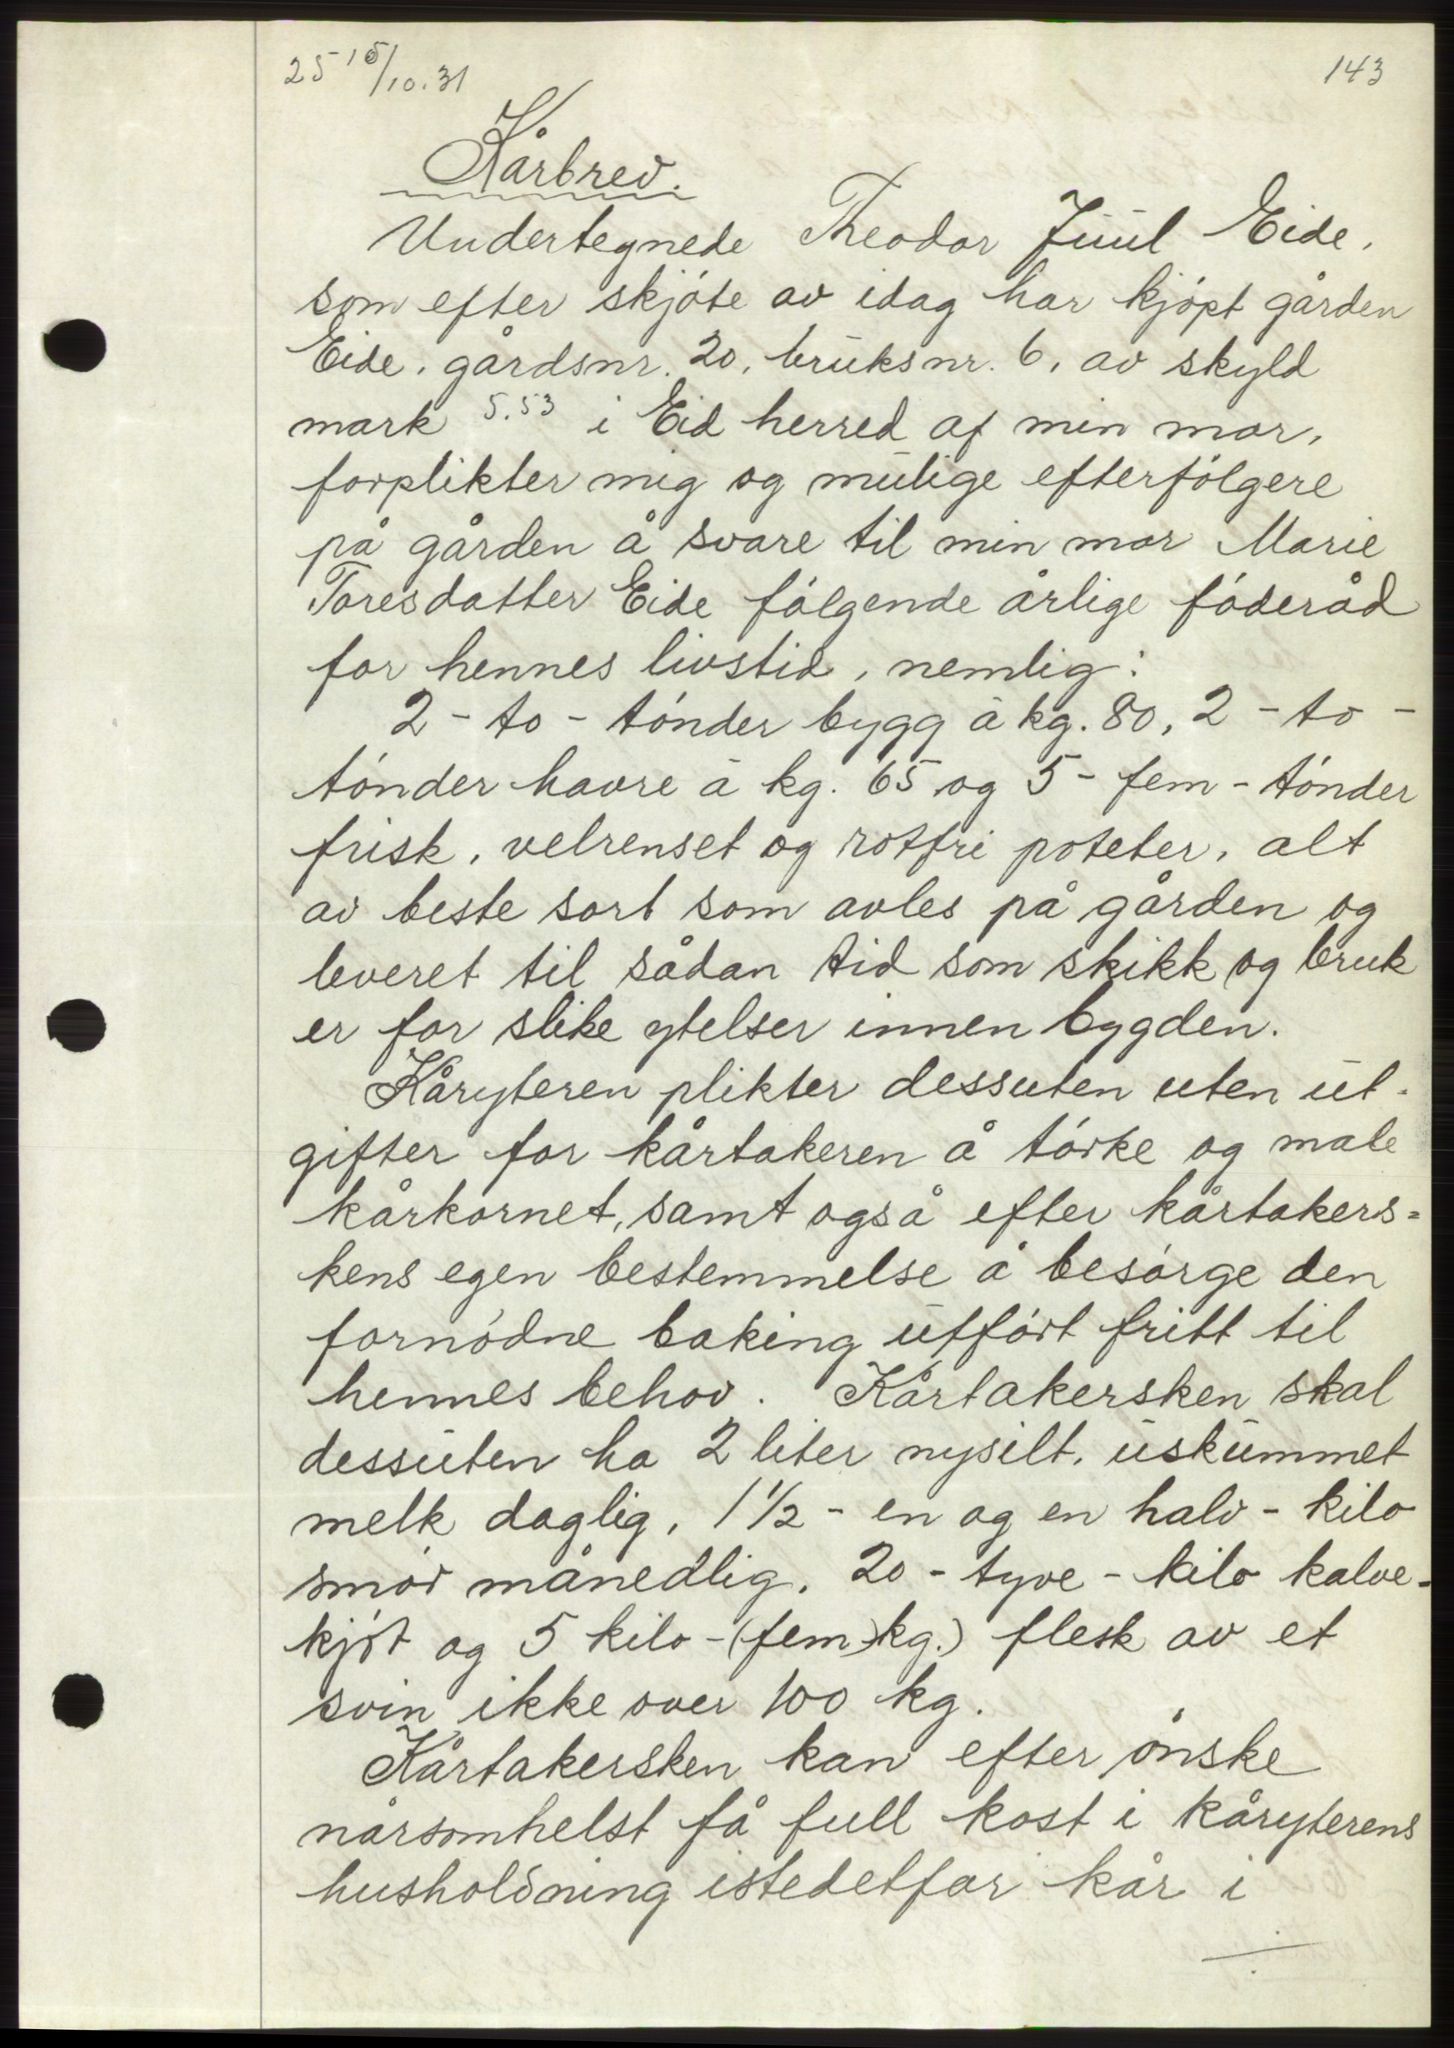 25 15/10.31
143
Kårbrev.
Undertegnede Theodor Juul Eide,
som efter skjóte av idag har kjópt gården
Eide, gårdsnr. 20, bruksnr. 6, av skyld
mark 5.53 i Eid herred af min mor,
forplikter mig og mulige efterfólgere
på gården å svare til min mor Marie
Toresdatter Eide fólgende årlige fóderåd
for hennes livstid, nemlig:
2 - to - tónder bygg à kg. 80, 2 - to -
tónder havre à kg. 65 og 5 - fem - tónder
frisk, velrenset og rotfri poteter, alt
av beste sort som avles på gården og
leveret til sådan tid som skikk og bruk
er for slike ytelser innen bygden.
Kåryteren plikter dessuten uten ut-
gifter for kårtakeren å tórke og male
kårkornet, samt også efter kårtakers=
kens egen bestemmelse å besórge den
fornódne baking utfórt fritt til
hennes behov. Kårtakersken skal
dessuten ha 2 liter nysilt, uskummet
melk daglig, 1 1/2 - en og en halv - kilo
smór månedlig, 20 - tyve - kilo kalve-
kjót og 5 kilo - (fem kg.) flesk av et
svin ikke over 100 kg.
Kårtakersken kan efter ónske
nårsomhelst få full kost i kåryterens
husholdning istedetfor kår i